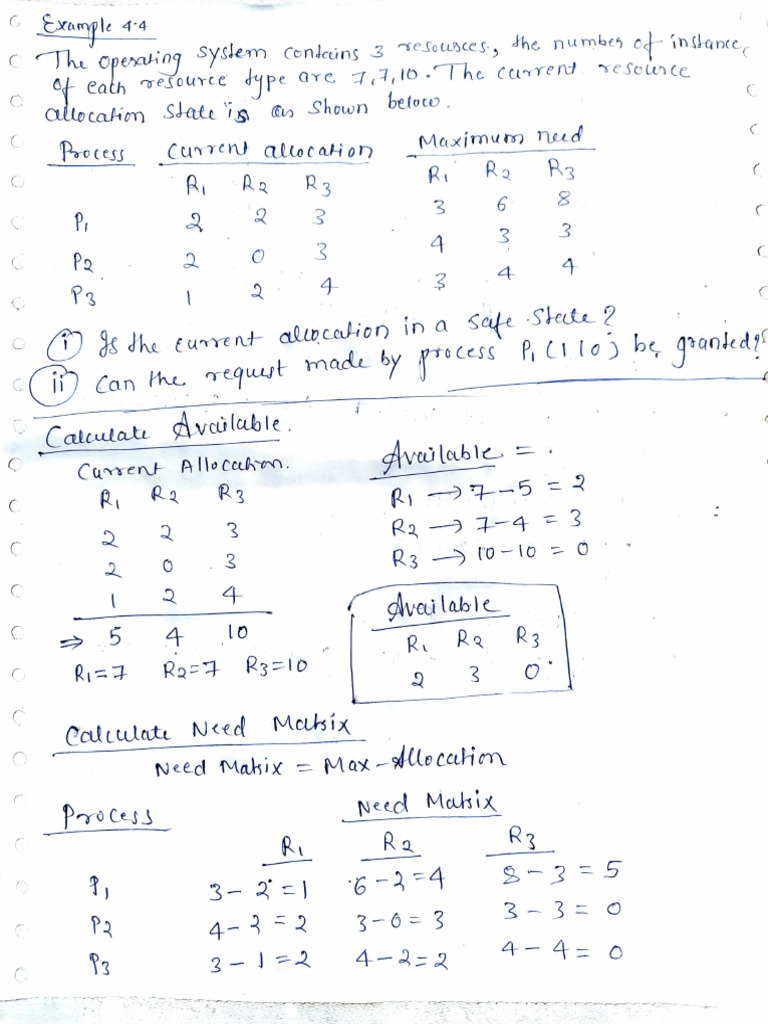 Example 4.4
The operating system contains 3 resources, the number of instance
of each resource type are 7,7,10. The current resource
allocation state is as shown below.
Process Current allocation Maximum need
R1 R2 R3 R1 R2 R3
P1 2 2 3 3 6 8
P2 2 0 3 4 3 3
P3 1 2 4 3 4 4
(i) Is the current allocation in a safe state?
(ii) Can the request made by process P1 (1 1 0) be granted?
Calculate Available.
Current Allocation.
R1 R2 R3
2 2 3
2 0 3
1 2 4
⇒ 5 4 10
R1=7 R2=7 R3=10
Available = .
R1 → 7-5 = 2
R2 → 7-4 = 3
R3 → 10-10 = 0
Available
R1 R2 R3
2 3 0
Calculate Need Matrix
Need Matrix = Max-Allocation
Process Need Matrix
R1 R2 R3
P1 3-2=1 6-2=4 8-3=5
P2 4-2=2 3-0=3 3-3=0
P3 3-1=2 4-2=2 4-4=0